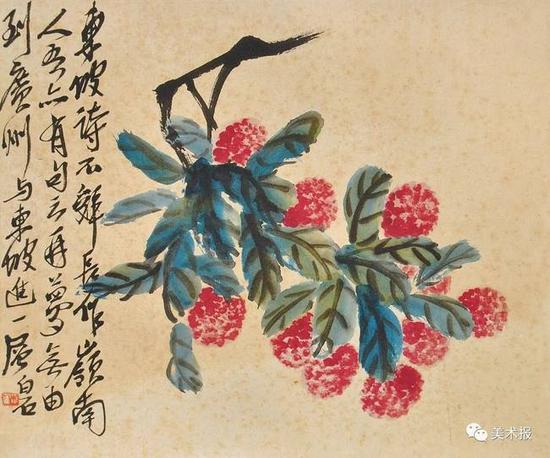 東坡詩不辭長作嶺南
人吾亦有句云再夢無由
到廣州与東坡進一層白石
美术报